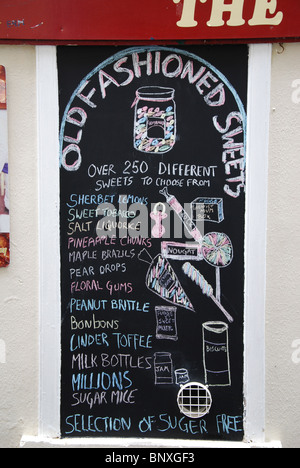 THE
OLD FASHIONED SWEETS
OVER 250 DIFFERENT
SWEETS TO CHOOSE FROM
SHERBET LEMONS
SWEET TOBACCO
SALT LIQUORICE
PINEAPPLE CHUNKS
MAPLE BRAZILS
PEAR DROPS
FLORAL GUMS
PEANUT BRITTLE
BONBONS
CINDER TOFFEE
MILK BOTTLES
MILLIONS
SUGAR MICE
SELECTION OF SUGER FREE
NOUGAT
BISCUITS
JAM
JAM
alamy
Image ID: B0NXG3
www.alamy.com